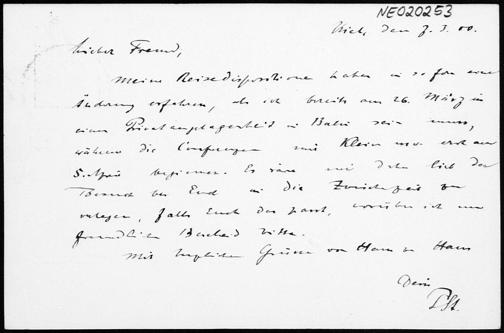 NE020253
Kiel, den 7. 3. 00.
Lieber Freund,
Meine Reisedispositionen haben in so fern eine
Änderung erfahren, als ich bereits am 26. März in
einer Privatangelegenheit in Berlin sein muss,
während die Conferenzen mit Klein usw. erst am
5. April beginnen. Es wäre mir daher lieb den
Besuch bei Euch in die Zwischenzeit zu
verlegen, falls Euch das passt, worüber ich um
freundlichen Bescheid bitte.
Mit herzlichen Grüssen von Haus zu Haus
Dein
P. St.